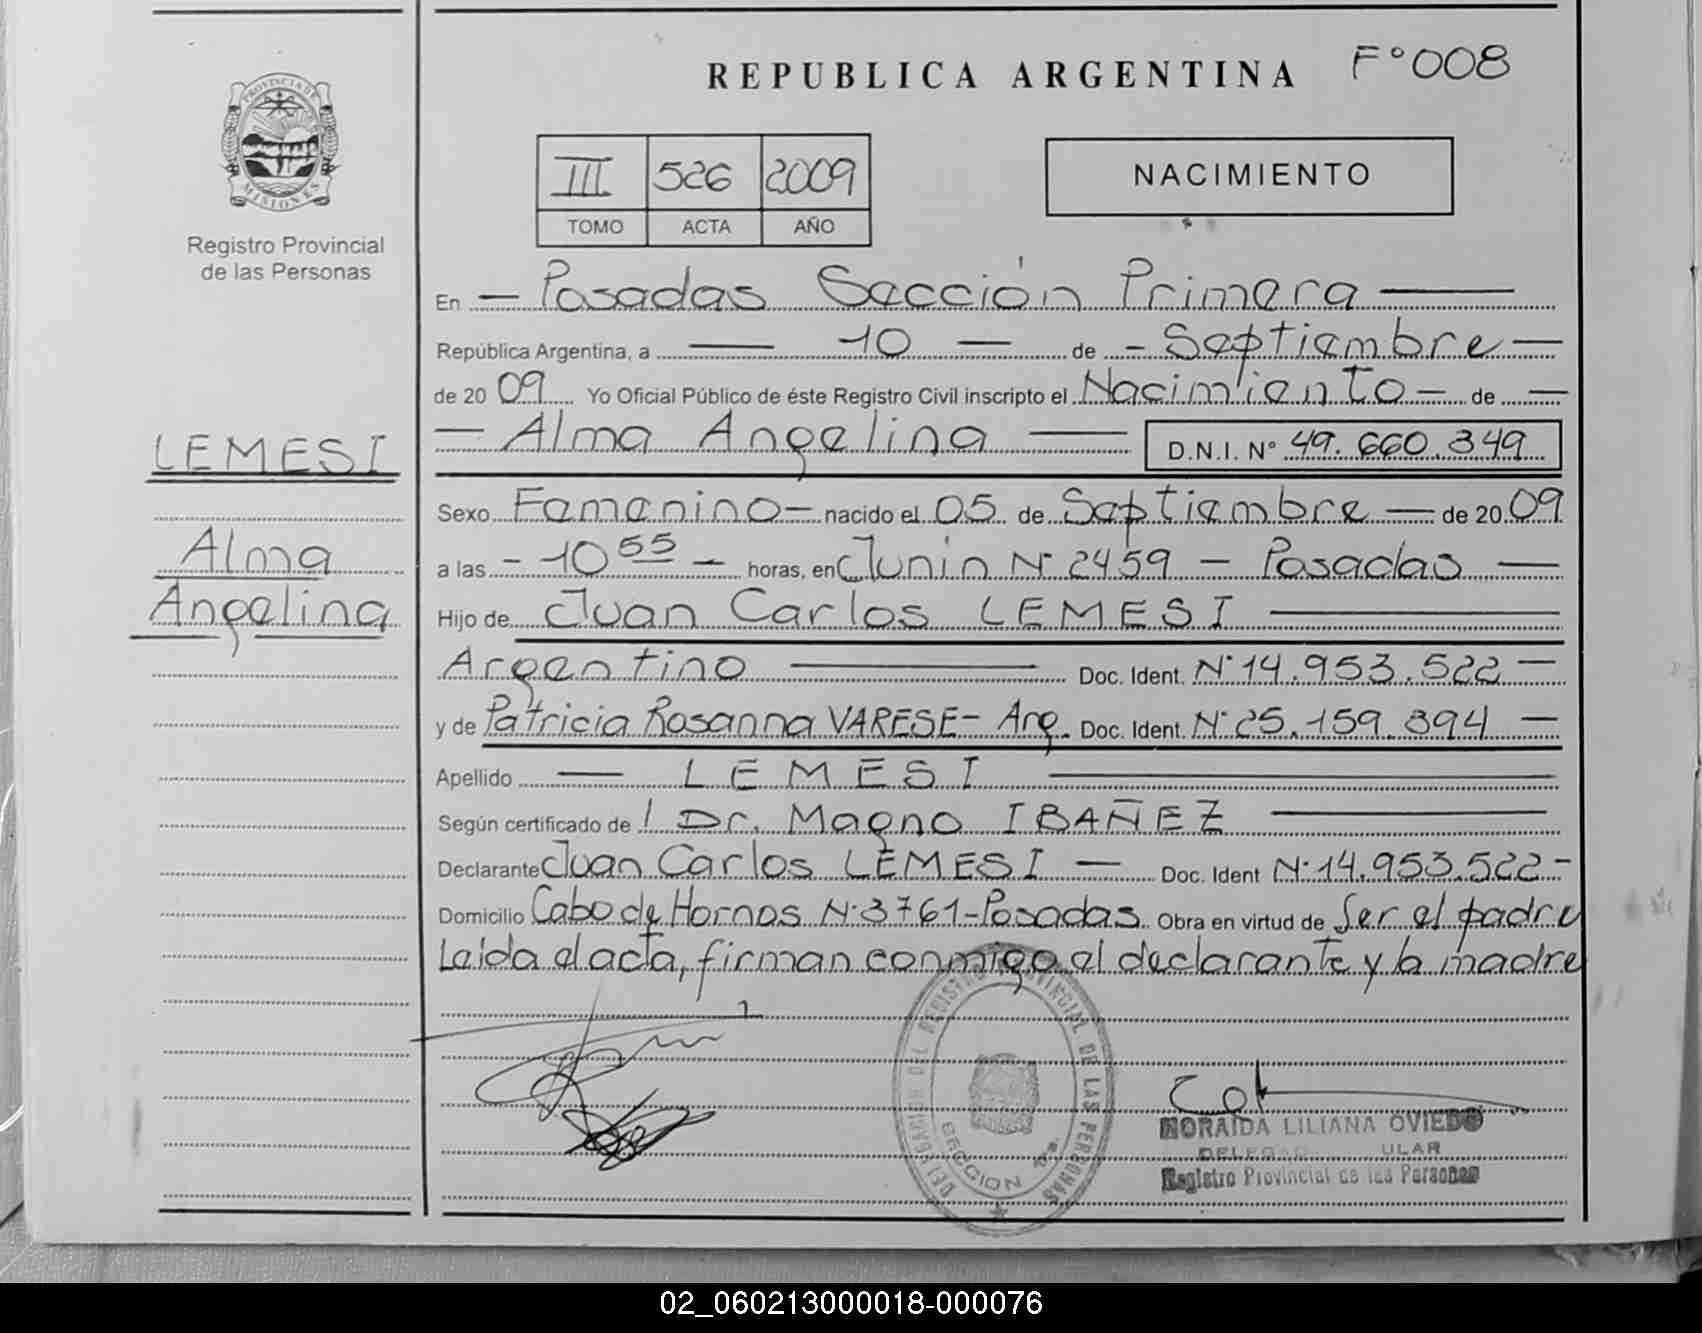 REPUBLICA ARGENTINA F°008
PROVINCIA DE MISIONES
Registro Provincial
de las Personas
III 526 2009
TOMO ACTA AÑO
NACIMIENTO
En — Posadas Sección Primera —
República Argentina, a — 10 — de - Septiembre —
de 20 09 Yo Oficial Público de éste Registro Civil inscripto el Nacimiento — de —
— Alma Angelina — D.N.I. N° 49.660.349
LEMESI
Alma
Angelina
Sexo Femenino — nacido el 05 de Septiembre — de 20 09
a las - 10 55 - horas, en Junin N° 2459 — Posadas —
Hijo de Juan Carlos LEMESI —
Argentino — Doc. Ident. N° 14.953.522 —
y de Patricia Rosanna VARESE - Arg. Doc. Ident. N° 25.159.394 —
Apellido — LEMESI —
Según certificado de Dr. Magno IBAÑEZ —
Declarante Juan Carlos LEMESI — Doc. Ident N° 14.953.522 -
Domicilio Cabo de Hornos N° 3761 - Posadas. Obra en virtud de Ser el padre
Leida el acta, firman conmigo el declarante y la madre
DEL REGISTRO PROVINCIAL DE LAS PERSONAS
SECCION 1ra.
NORAIDA LILIANA OVIEDO
Registro Provincial de las Personas
02_060213000018-000076